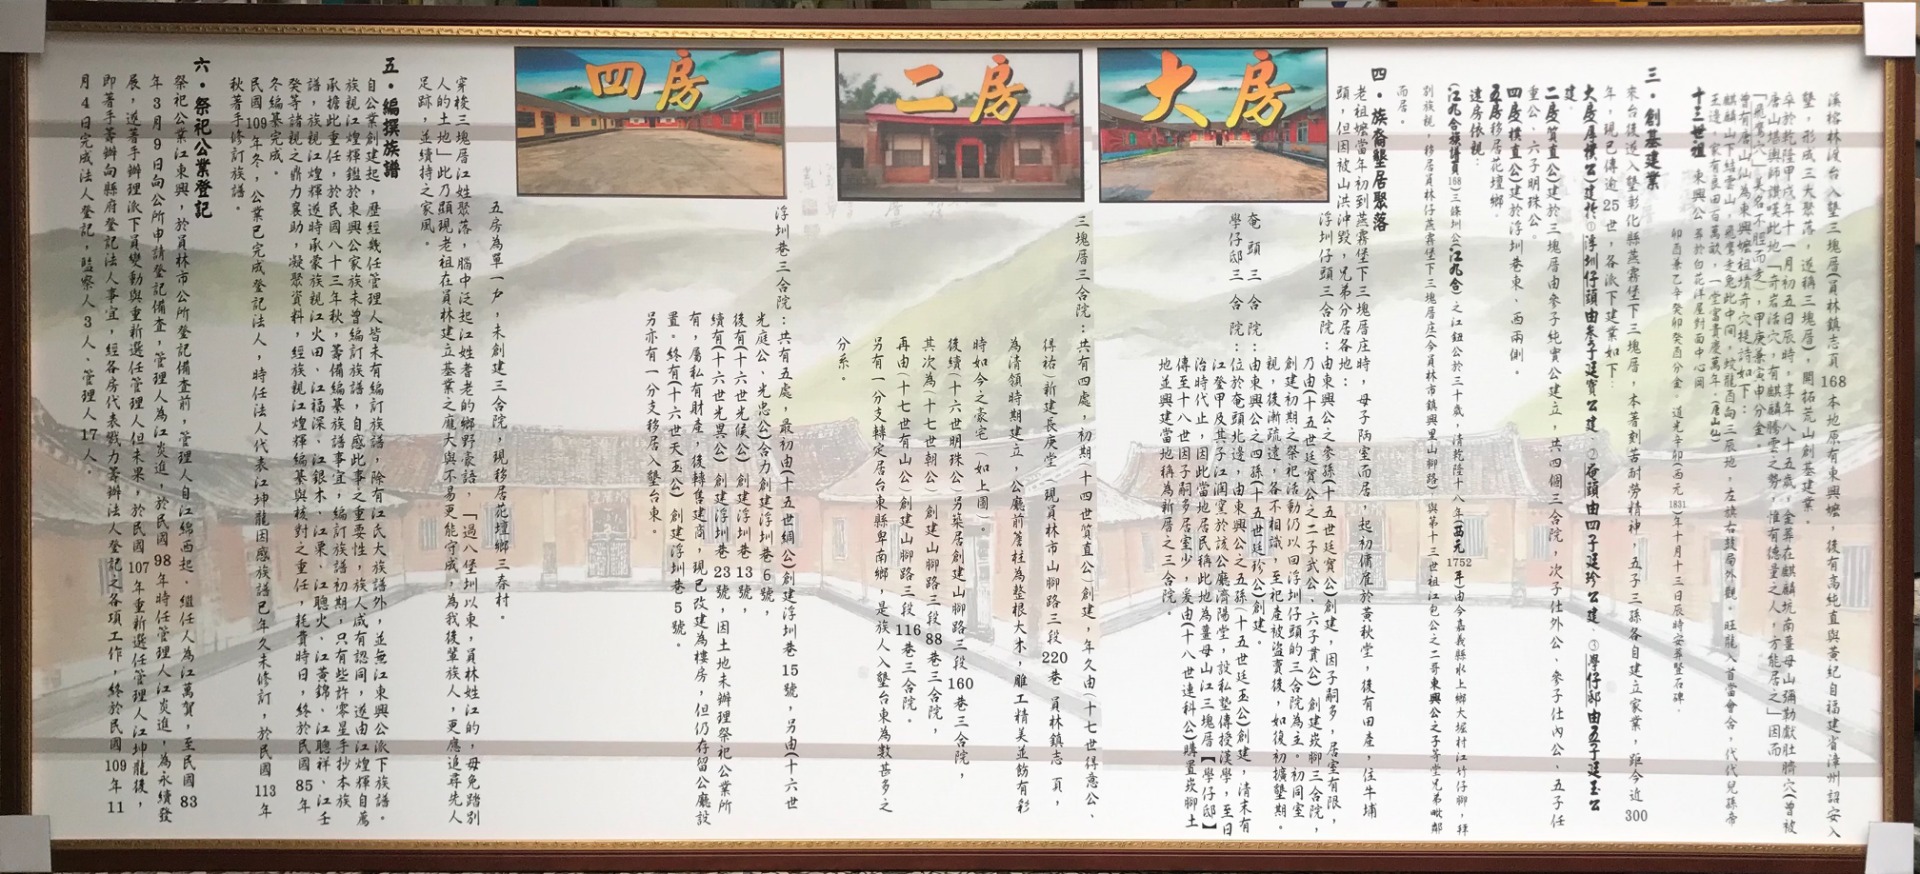 溪榕林渡台入墾三塊厝(員林鎮志頁168本地原有東興嬤,後有高純直與菩紀自福建省漳州詔安入
墾,形成三大聚落,遂稱三塊厝),開拓荒山創基建業。
卒於乾隆甲戌年十一月初五日辰時,享年八十五歲,金葬在麒麟坑南薑母山彌勒獻肚臍穴(曾被
唐山堪輿師讚嘆此地「奇岩活穴,有麒麟騰雲之勢,惟有德量之人,方能居之」因而
「飛鴦穴」美名不脛而走),甲庚兼寅申分金。
曾有唐山仙為東興嬤祖墳奇穴提詩如下:
麒麟山下結雲山,飛鴦走兔此中間,蛟龍酉向三辰地,左旗右鼓局外觀,旺龍入首當會合,代代兒孫帝
王邊,家有良田百萬畝,一堂富貴慶萬年。唐山仙)
十三世祖 東興公 葬於白花洋屋對面中心崗
卯酉兼乙辛癸卯癸酉分金。道光辛卯(西元1831)年十月十三日辰時安葬暨石碑。
三・創基建業
來台後遂入墾彰化縣燕霧堡下三塊厝,本著刻苦耐勞精神,五子三孫各自建立家業,距今近300
年,現已傳逾25世,各派下建業如下:
大房厚樸公建於①浮圳仔頭由叁子廷寶公建、②菴頭由四子廷珍公建、③學仔邸由五子廷玉公
建。
二房質直公)建於三塊厝由參子純實公建立,共四個三合院,次子仕外公、參子仕內公、五子任
重公、六子明珠公。
四房樸直公)建於浮圳巷東、西兩側。
五房移居花壇鄉。
建房依親:
(江九合族譜頁168)三條圳公(江九合)之江鈕公於三十歲,清乾隆十八年(西元1752年)由今嘉義縣水上鄉大堀村江竹仔腳,拜
別族親,移居員林仔燕霧堡下三塊厝庄(今員林市鎮興里山腳路),與第十三世祖江包公之二哥東興公之子等堂兄弟毗鄰
而居。
四・族裔墾居聚落
老祖嬤當年初到燕霧堡下三塊厝庄時,母子陋室而居,起初傭雇於黃秋堂,後有田產,住牛埔
頭,但因被山洪沖毀,兄弟分居各地:
浮圳仔頭三合院:由東興公之參孫(十五世廷寶公)創建,因子嗣多,居室有限,
乃由(十五世廷寶公之二子武公、六子貫公)創建崁腳三合院,
創建初期之祭祀活動仍以回浮圳仔頭的三合院為主。初同室
親,後漸疏遠,各不相識,至祀產被盜賣後,如後初擴墾期。
菴頭三合院:由東興公之四孫(十五世廷珍公)創建。
學仔邸三合院:位於菴頭北邊,由東興公之五孫(十五世廷玉公)創建,清末有
江登甲及其子江潤堂於該公廳濟陽堂,設私塾傳授漢學,至日
治時代止,因此當地居民稱此地為薑母山江三塊厝【學仔邸】
傳至十八世因子嗣多居室少,爰由(十八世連科公)購置崁腳土
地並興建當地稱為新厝之三合院。
大房
三塊厝三合院:共有四處,初期(十四世質直公)創建,年久由(十七世得意公、
得祐)新建長庚堂(現員林市山腳路三段220巷員林鎮志頁,
為清領時期建立,公廳前簷柱為整根大木,雕工精美並飾有彩
時如今之豪宅(如上圖)。
後續(十六世明珠公)另築居創建山腳路三段160巷三合院,
其次為(十七世朝公)創建山腳路三段88巷三合院,
再由(十七世有山公)創建山腳路三段116巷三合院。
另有一分支轉定居台東縣卑南鄉,是族人入墾台東為數甚多之
分系。
二房
浮圳巷三合院:共有五處,最初由(十五世綢公)創建浮圳巷15號,另由(十六世
光庭公、光忠公)合力創建浮圳巷6號,
後有(十六世光候公)創建浮圳巷13號,
續有(十六世光異公)創建浮圳巷23號,因土地未辦理祭祀公業所
有,屬私有財產,後轉售建商,現已改建為樓房,但仍存留公廳設
置。終有(十六世天玉公)創建浮圳巷5號。
另亦有一分支移居入墾台東。
四房
五房為單一戶,未創建三合院,現移居花壇鄉三春村。
穿梭三塊厝江姓聚落,腦中泛起江姓耆老的鄉野豪語,「過八堡圳以東,員林姓江的,毋免踏別
人的土地」此乃顯現老祖在員林建立基業之龐大與不易更能守成,為我後輩族人,更應追尋先人
足跡,並續持之家風。
五・編撰族譜
自公業創建起,歷經幾任管理人皆未有編訂族譜,除有江氏大族譜外,並無江東興公派下族譜。
族親江煌輝鑑於東興公家族未曾編訂族譜,自感此事之重要性,族人咸有認同,遂由江煌輝自薦
承擔此重任,於民國八十三年秋,籌備編纂族譜事宜,編訂族譜初期,只有些許零星手抄本族
譜,族親江煌輝遂時承蒙族親江火田、江福深、江銀木、江栗、江聰火、江黃錦、江聰祥、江壬
癸等諸親之鼎力襄助,凝聚資料,經族親江煌輝編纂與核對之重任,耗費時日,終於民國85年
冬編纂完成。
民國109年冬,公業已完成登記法人,時任法人代表江坤龍因感族譜已年久未修訂,於民國113年
秋著手修訂族譜。
六・祭祀公業登記
祭祀公業江東興,於員林市公所登記備查前,管理人自江綿西起、繼任人為江萬賀,至民國83
年3月9日向公所申請登記備查,管理人為江炎進,於民國98年時任管理人江炎進,為永續發
展,遂著手辦理派下員變動與重新選任管理人但未果,於民國107年重新選任管理人江坤龍後,
即著手籌辦向縣府登記法人事宜,經各房代表戮力籌辦法人登記之各項工作,終於民國109年11
月4日完成法人登記,監察人3人、管理人17人。